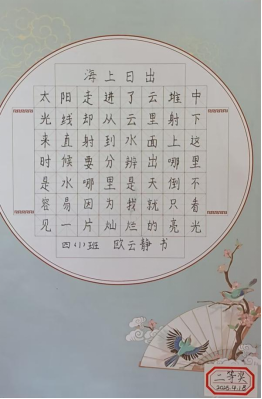 海上日出
太阳走进了云堆中
光线却从云里射下
来直射到水面上这
时候要分辨出哪里
是水哪里是天倒不
容易因为我就只看
见一片灿烂的亮光
四(1)班 欧云静书
二等奖
2025.4.18